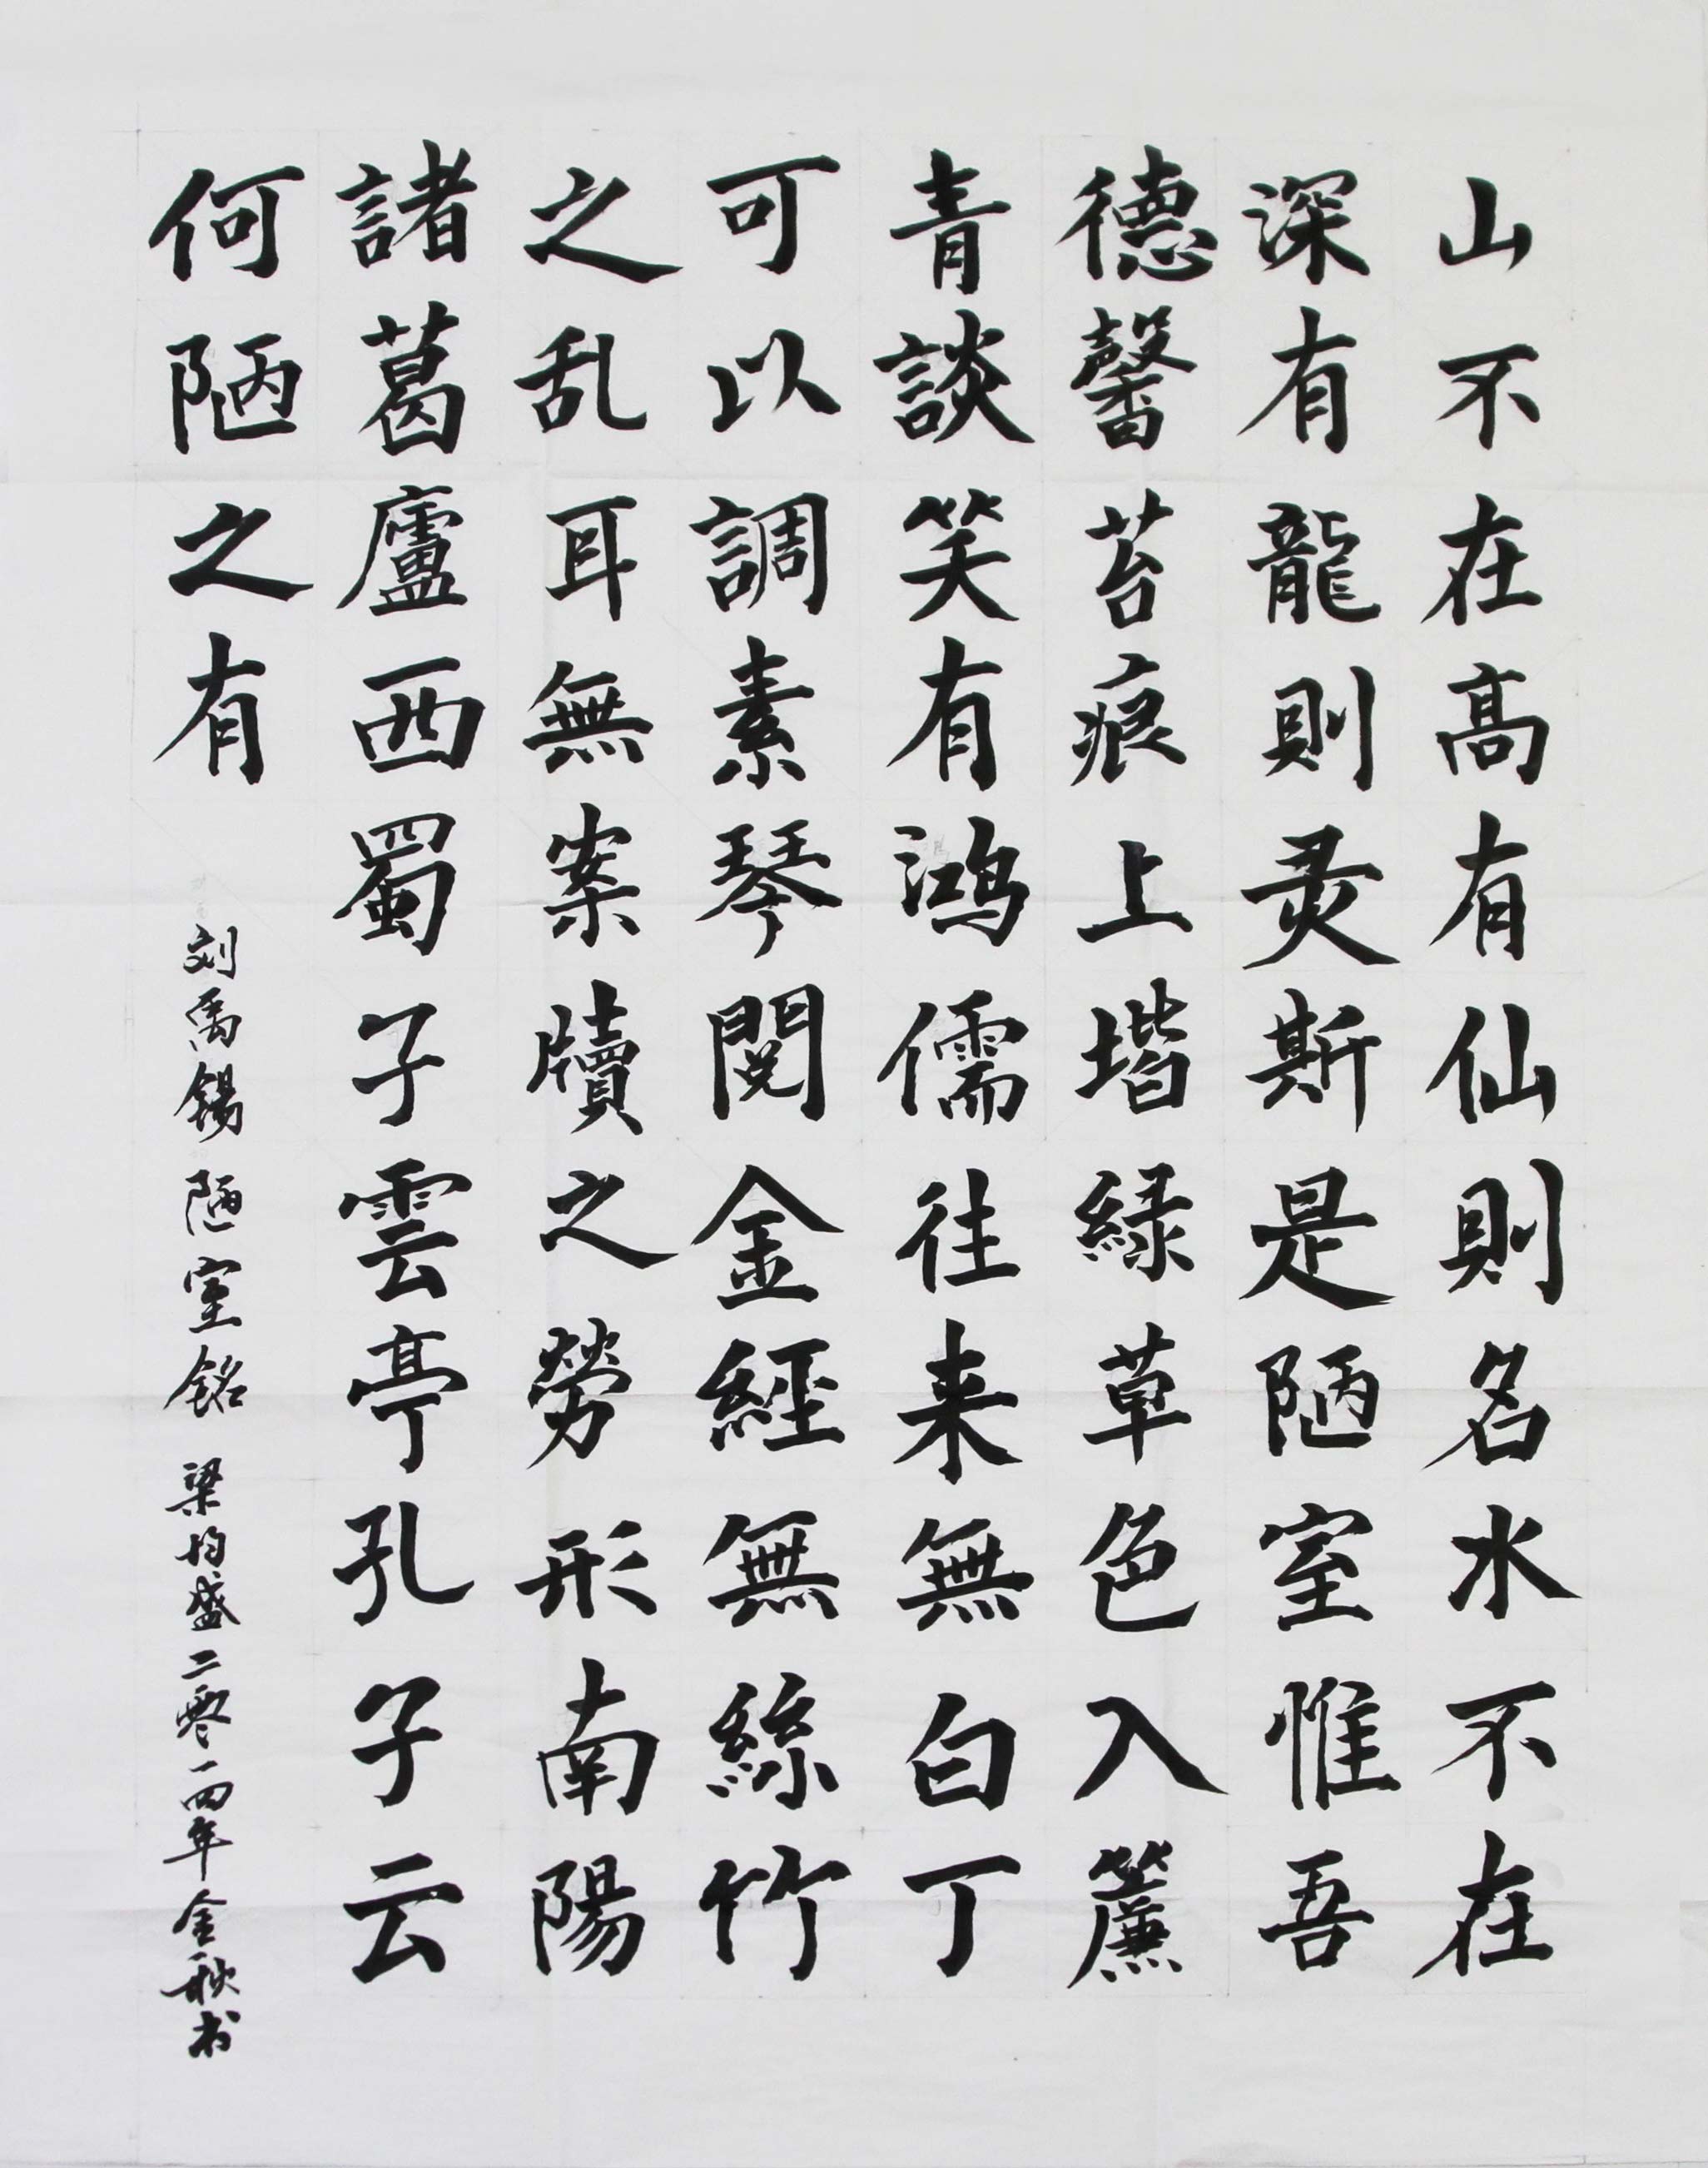 山不在高有仙則名水不在
深有龍則灵斯是陋室惟吾
德馨苔痕上堦緑草色入簾
青談笑有鴻儒往来無白丁
可以調素琴閱金經無絲竹
之乱耳無案牘之勞形南陽
諸葛廬西蜀子雲亭孔子云
何陋之有
刘禹锡陋室銘 梁均盛二零一四年金秋书